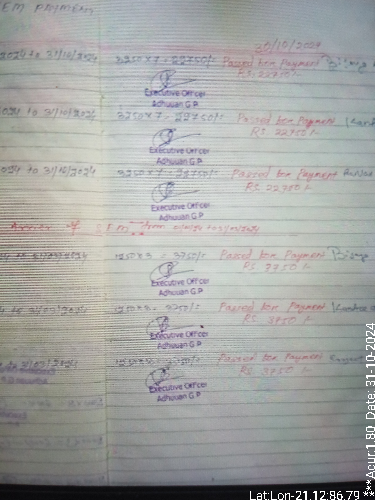 EM PAYMENT
30/10/2024
2024 to 31/10/2024 3250x7 = 22750/- Passed for Payment
RS. 22750/-
Executive Officer
Adhuuan G.P
024 to 31/10/2024 3250x7 = 22750/- Passed for Payment
RS. 22750/-
Executive Officer
Adhuuan G.P
024 to 31/10/2024 3250x7 = 22750/- Passed for Payment
RS. 22750/-
Executive Officer
Adhuuan G.P
Arrear of SEM from
to 31/03/2024 1250x3 = 3750/- Passed for Payment
RS. 3750/-
Executive Officer
Adhuuan G.P
to 31/03/2024 1250x3 = 3750/- Passed for Payment
RS 3750/-
Executive Officer
Adhuuan G.P
31/03/2024 1250x3 = 3750/- Passed for Payment
RS 3750/-
Executive Officer
Adhuuan G.P
***Acur:1.80 Date: 31-10-2024
Lat Lon-21.12:86.79